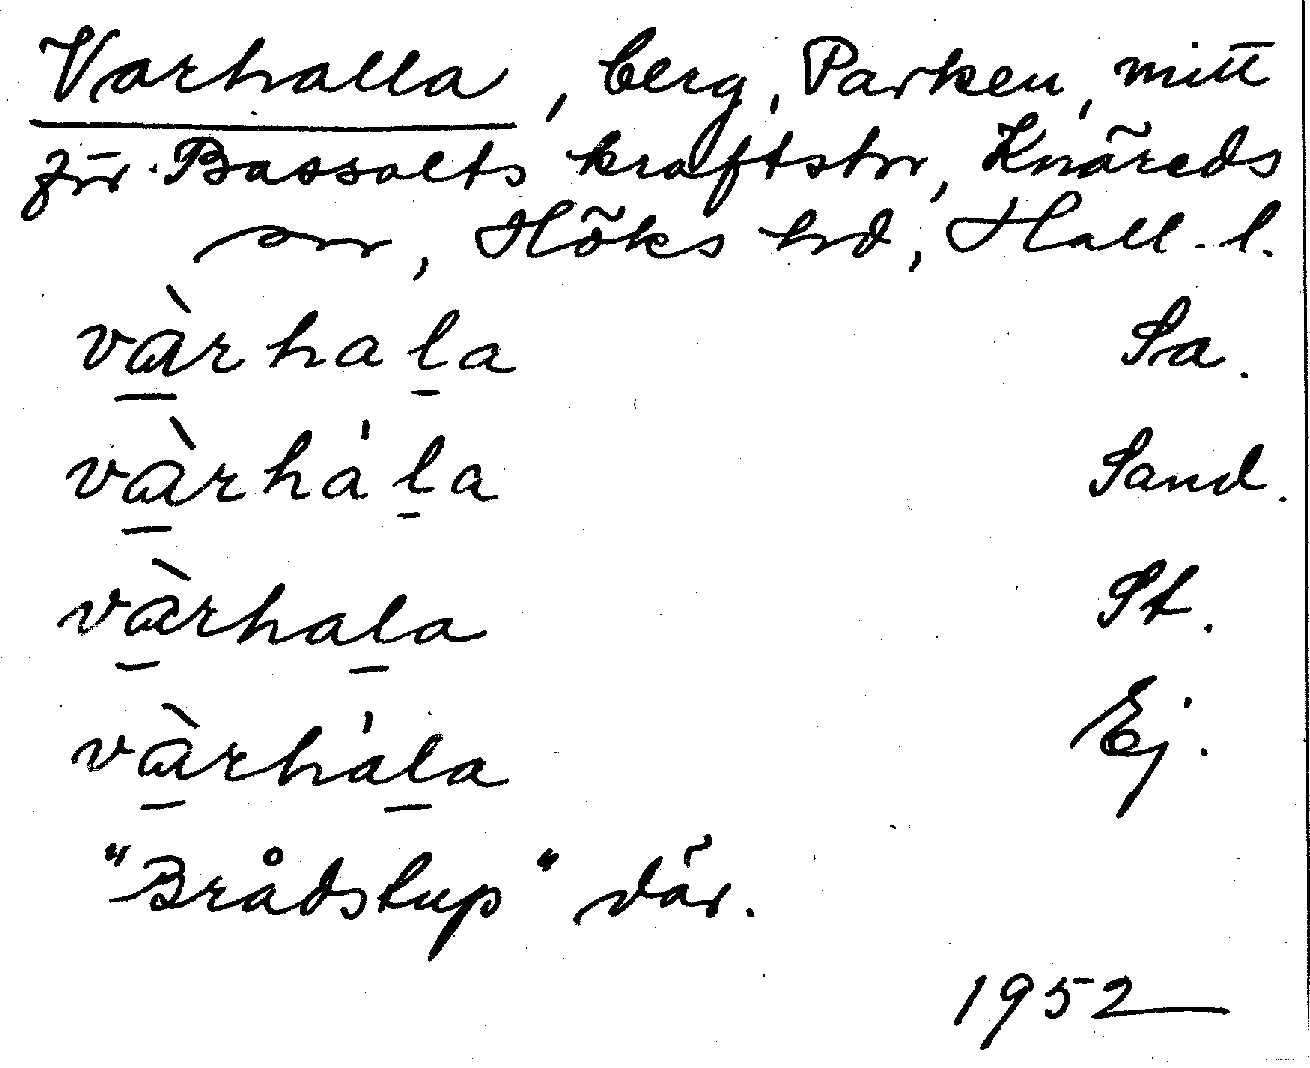 Varhalla, berg, Parken, mitt
för Bassalts kraftstn, Knäreds
sn, Höks hd, Hall. l.
và̱rhaḻa Sa.
và̱rháḻa Sand.
và̱rhaḻa St.
và̱rháḻa Ej.
"Brådstup" där.
1952